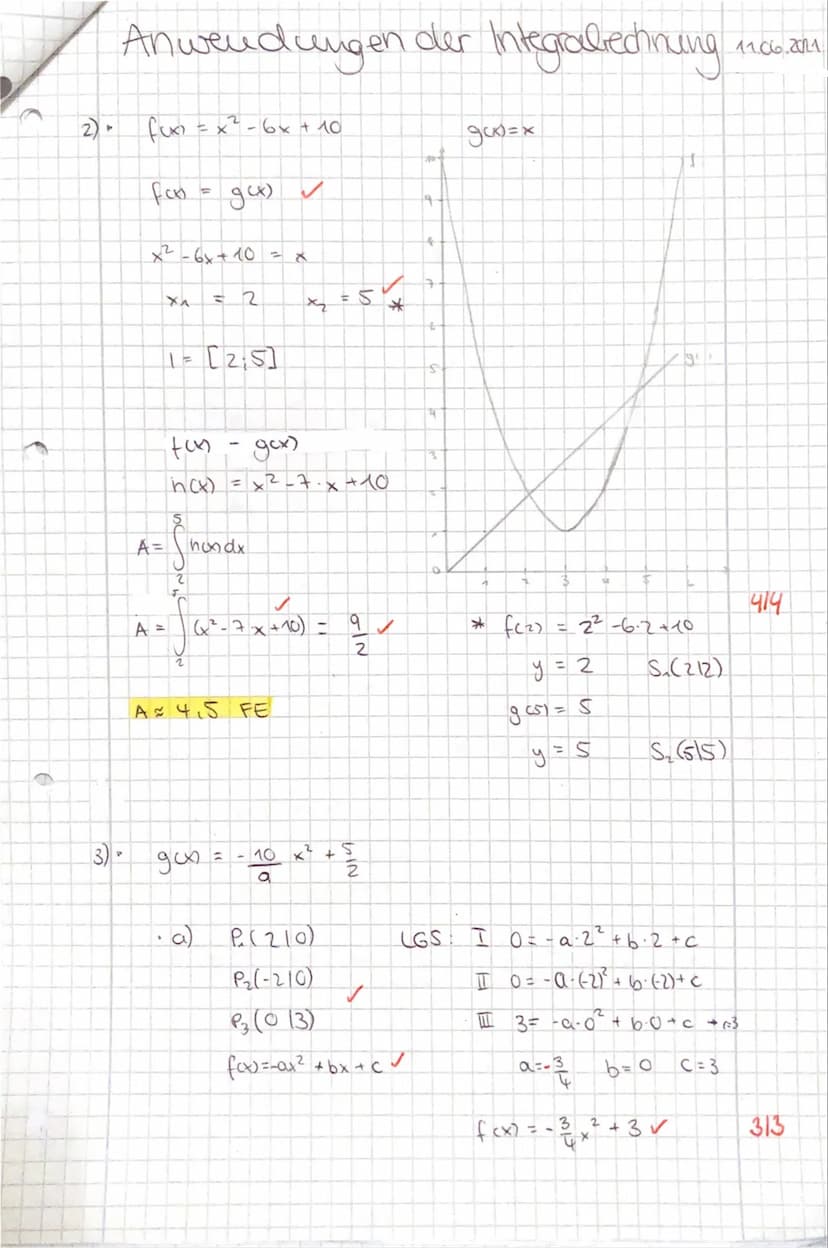 Anwendungen der Integralrechnung 11.06.2021
2) • f(x) = x² - 6x + 10
g(x) = x
f(x) = g(x) ✓
x² - 6x + 10 = x
x₁ = 2 x₂ = 5 ✓ *
I = [2;5]
f(x) - g(x)
h(x) = x² - 7·x + 10
A = ∫₂⁵ h(x) dx
A = ∫₂⁵ (x² - 7x + 10) = 9/2 ✓
A ≈ 4,5 FE
10
9
8
7
6
5
4
3
2
1
0
1 2 3 4 5 6
f
g
4/4
* f(2) = 2² - 6·2 + 10
y = 2 S₁(2|2)
g(5) = 5
y = 5 S₂(5|5)
3) • g(x) = - 10/9 x² + 5/2
· a) P₁(2|0)
P₂(-2|0) ✓
P₃(0|3)
f(x) = -ax² + bx + c ✓
LGS: I 0 = -a·2² + b·2 + c
II 0 = -a·(-2)² + b·(-2) + c
III 3 = -a·0² + b·0 + c → c=3
a = -3/4 b = 0 c = 3
f(x) = - 3/4 x² + 3 ✓
3/3